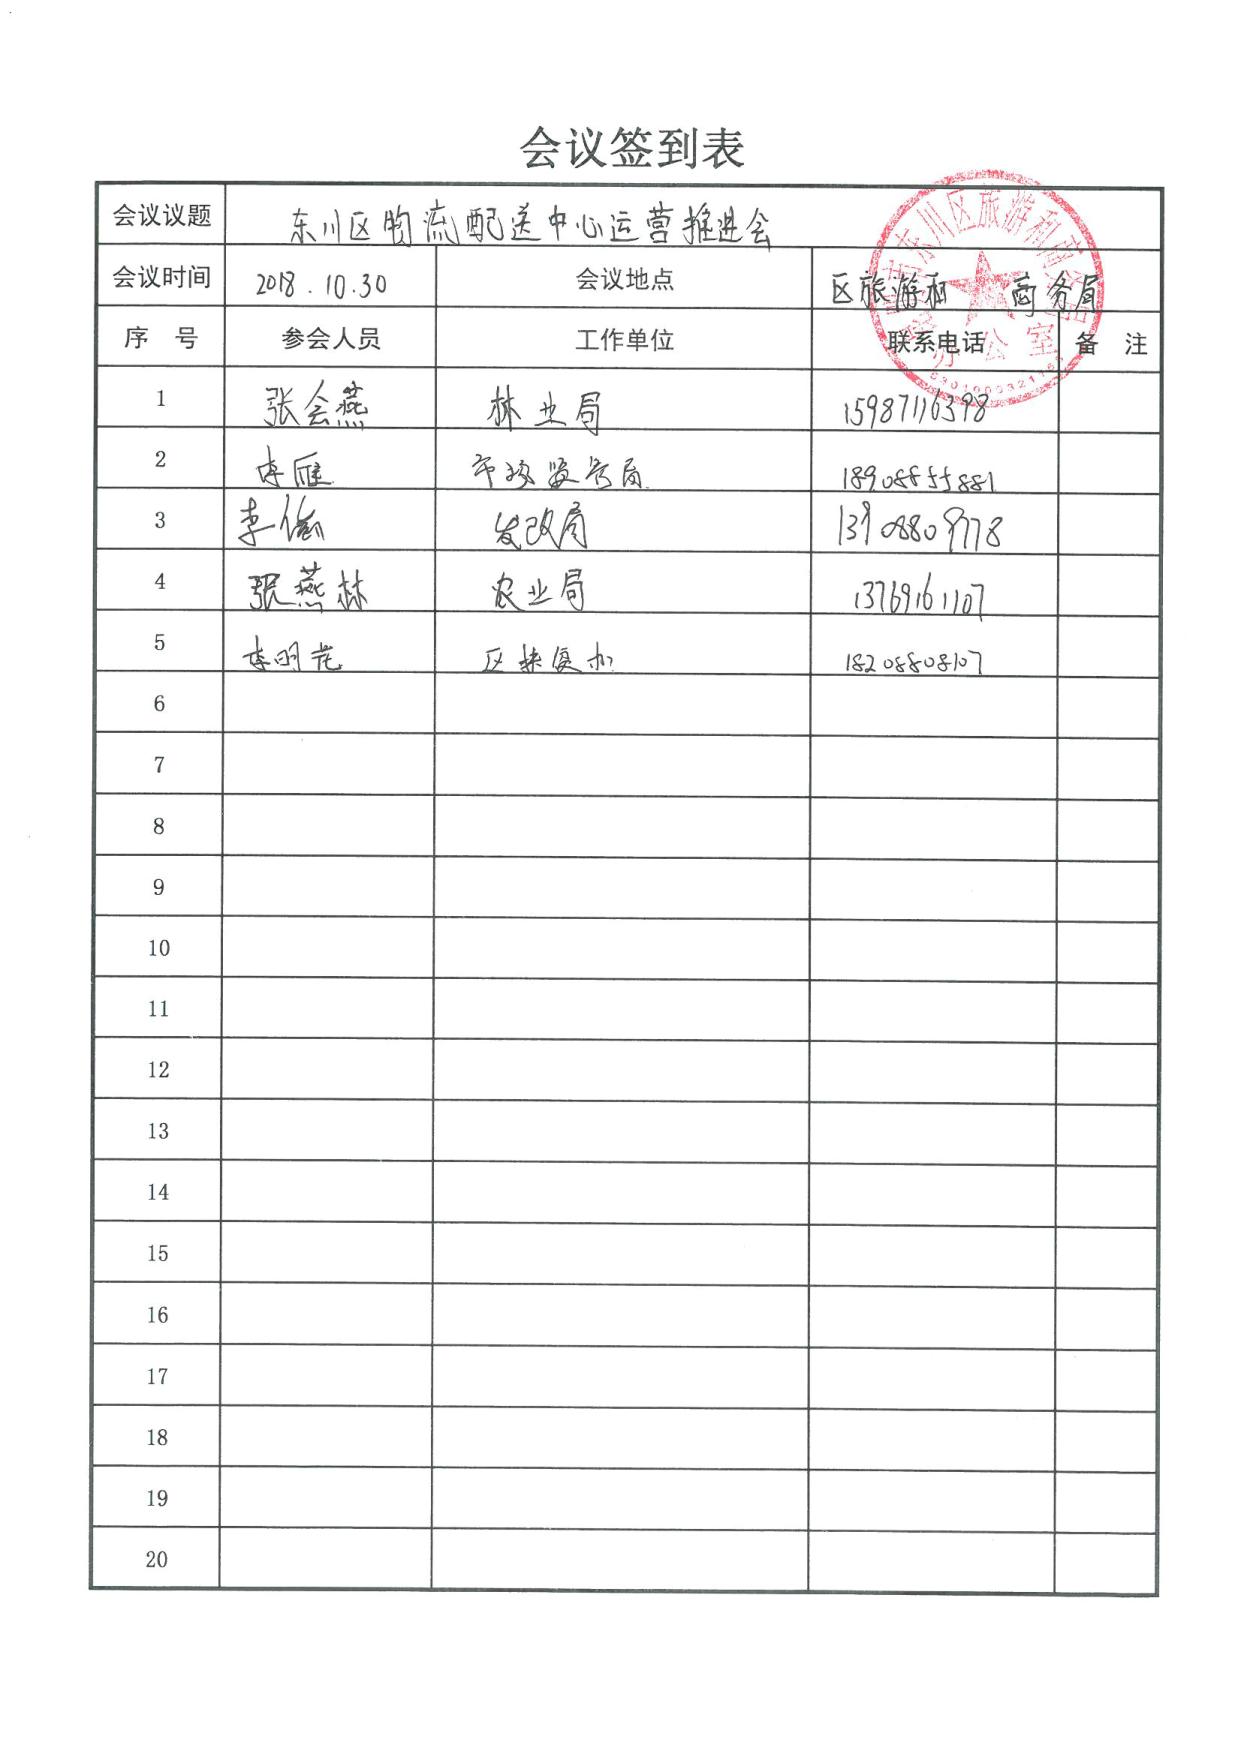 会议签到表
会议议题 东川区物流配送中心运营推进会
会议时间 2018.10.30 会议地点 区旅游和商务局
序 号 参会人员 工作单位 联系电话 备 注
1 张会燕 林业局 15987116398
2 李雁 市场监管局 18908855881
3 李 发改局 13908809778
4 张燕林 农业局 13769161107
5 李明花 区 办 18208808107
6
7
8
9
10
11
12
13
14
15
16
17
18
19
20
昆明市东川区旅游和商务局
办公室